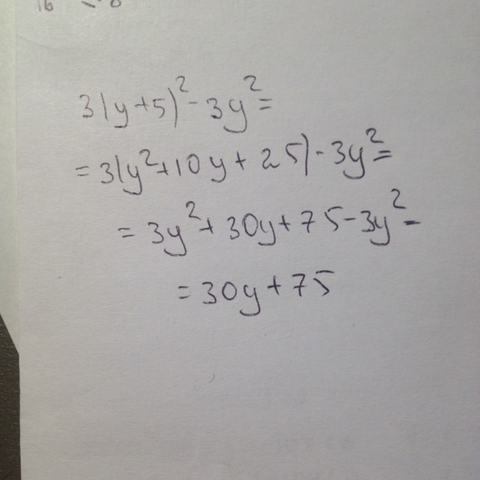 3(y+5)²-3y²=
=3(y²+10y+25)-3y²=
=3y²+30y+75-3y²-
=30y+75